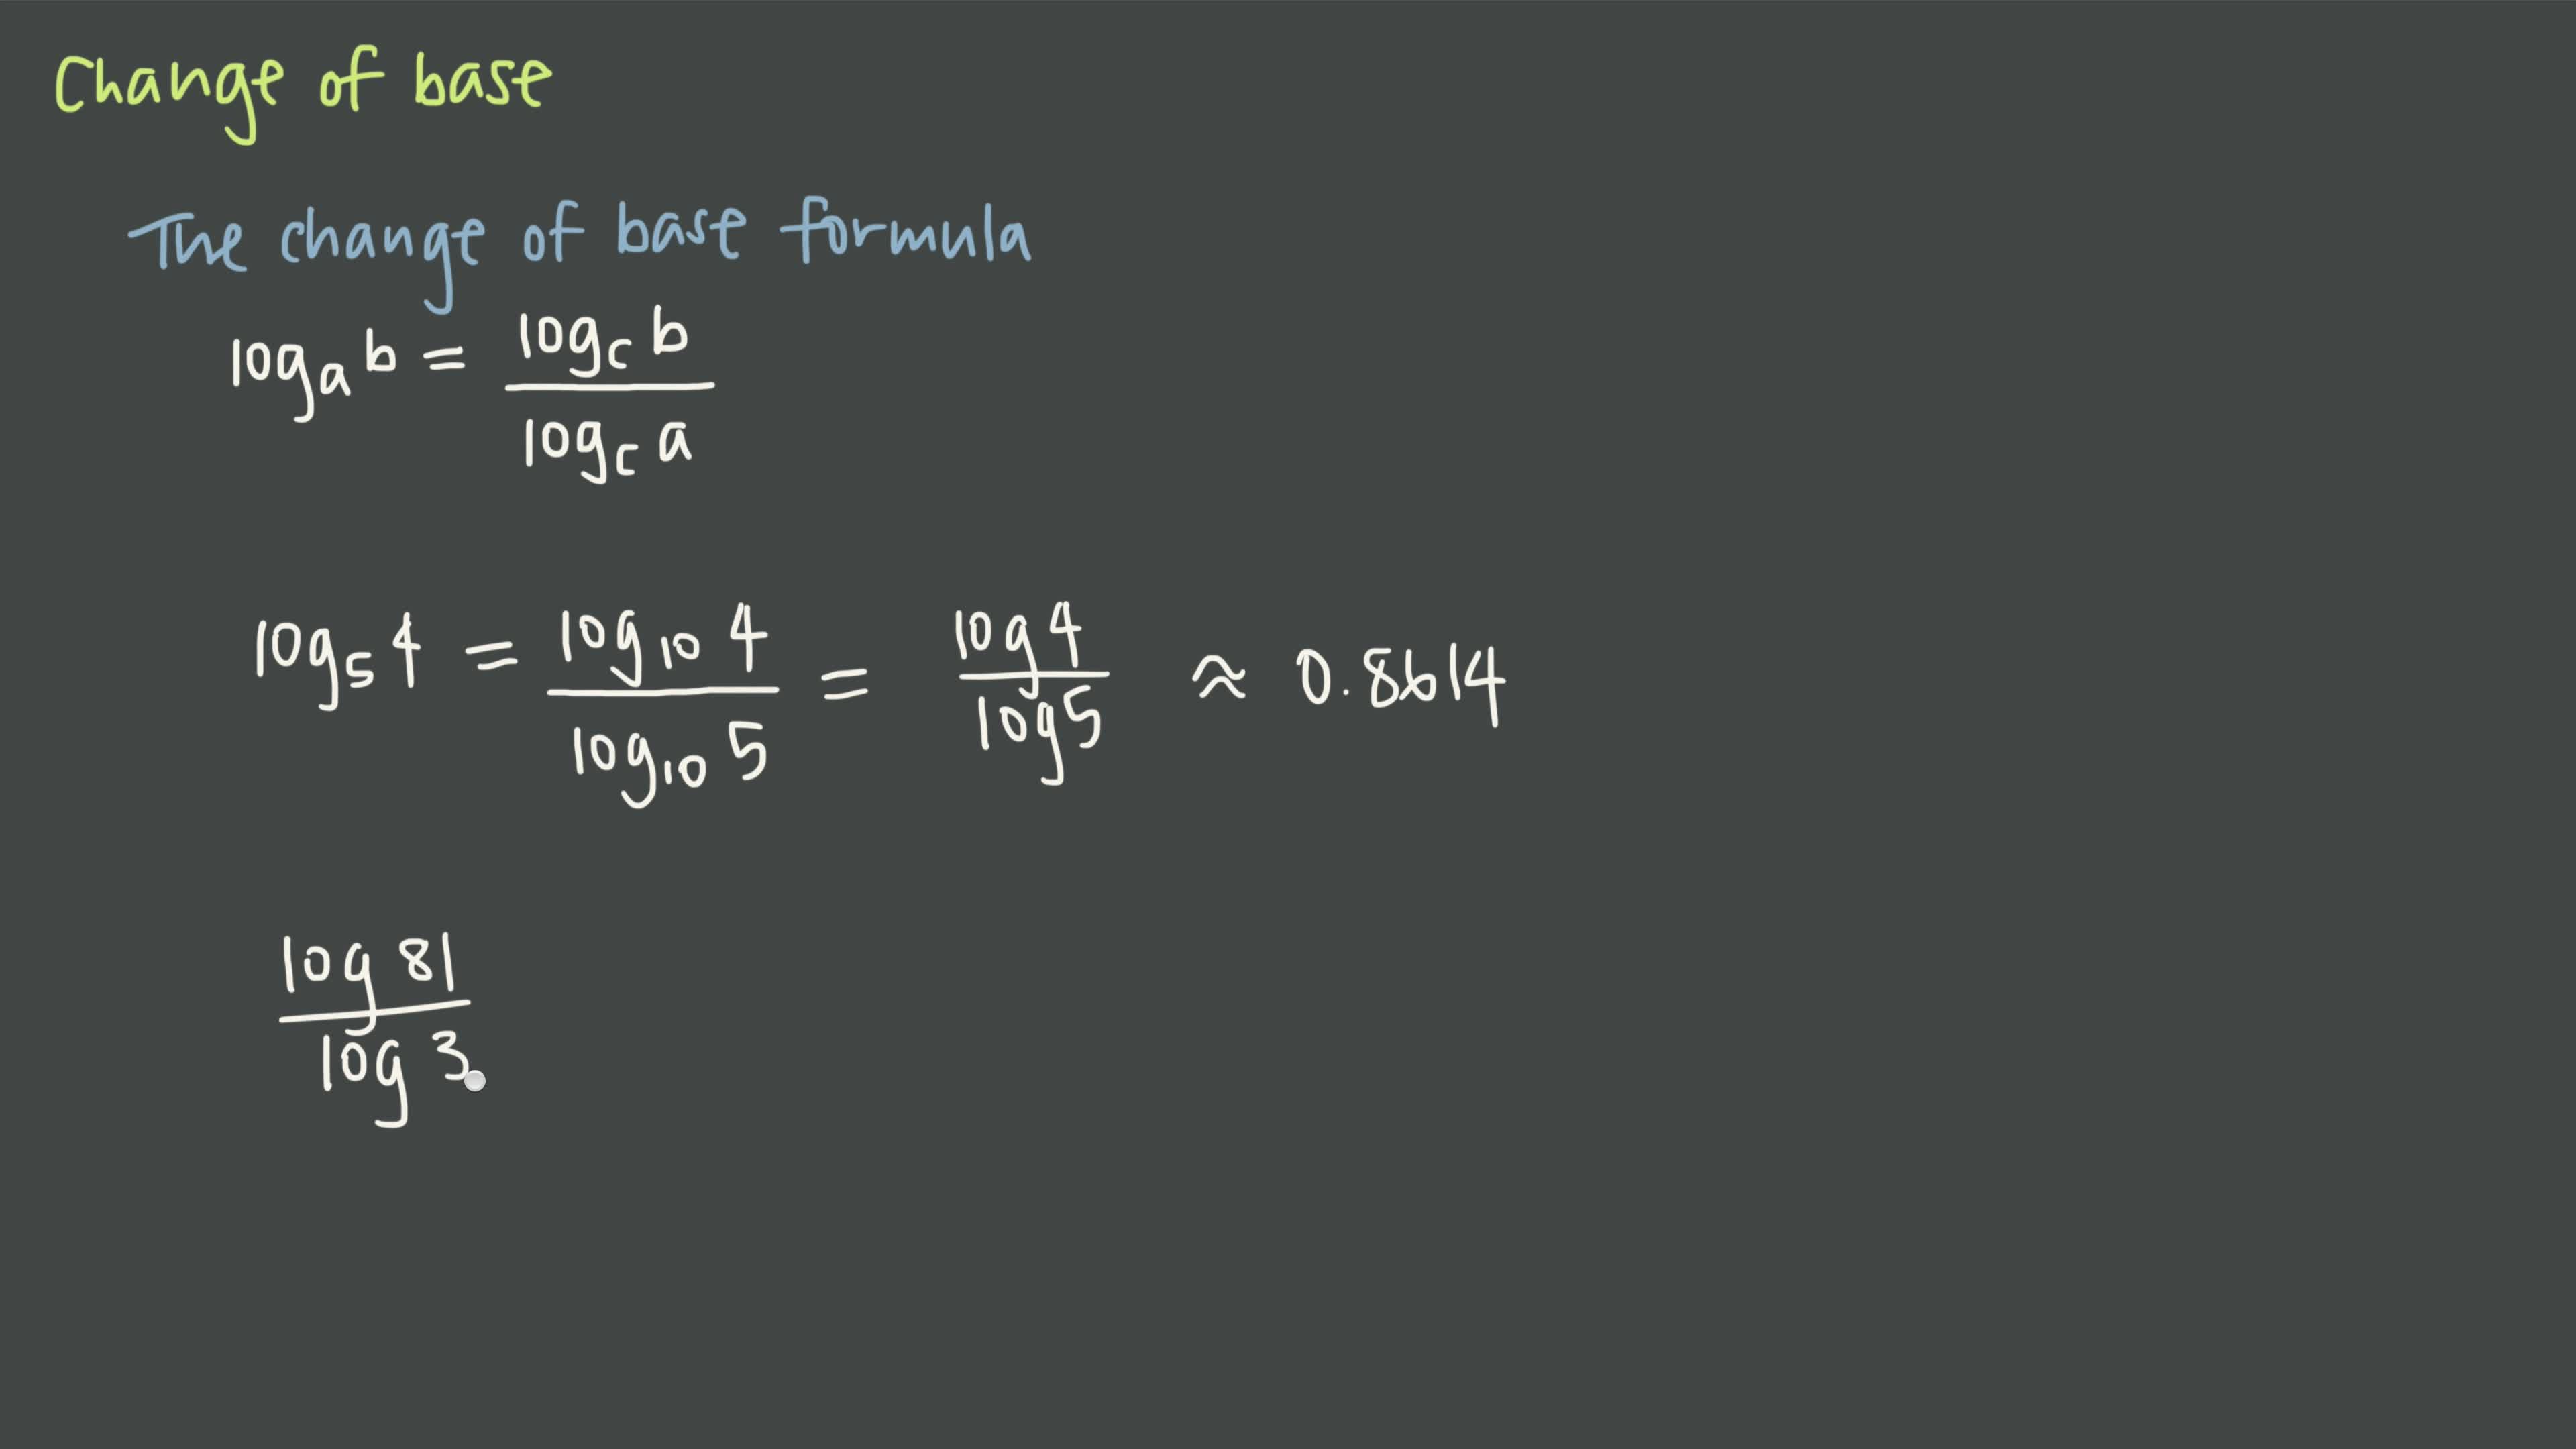 Change of base
The change of base formula
log_a b = \frac{log_c b}{log_c a}
log_5 4 = \frac{log_{10} 4}{log_{10} 5} = \frac{log 4}{log 5} ≈ 0.8614
\frac{log 81}{log 3}